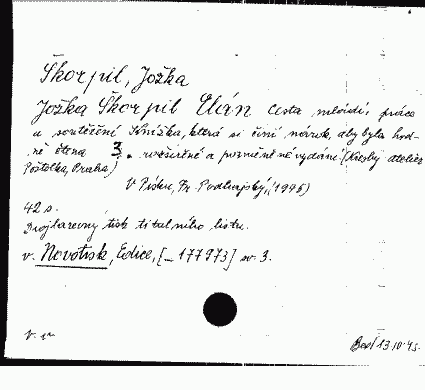 Škorpil, Jožka
Jožka Škorpil Elán Cesta mládí, práce
a soutěžění Knížka, která si činí nárok, aby byla hod-
ně čtena 3. rozšířené a pozměněné vydání. (Kresby atelier
Pošťolka, Praha)
V Písku, Fr. Podhajský, (1945)
42 s.
Dvojbarevný tisk titulního listu.
v. Novotisk, Edice, [_ 177973] sv. 3.
V. 
13.10.45.